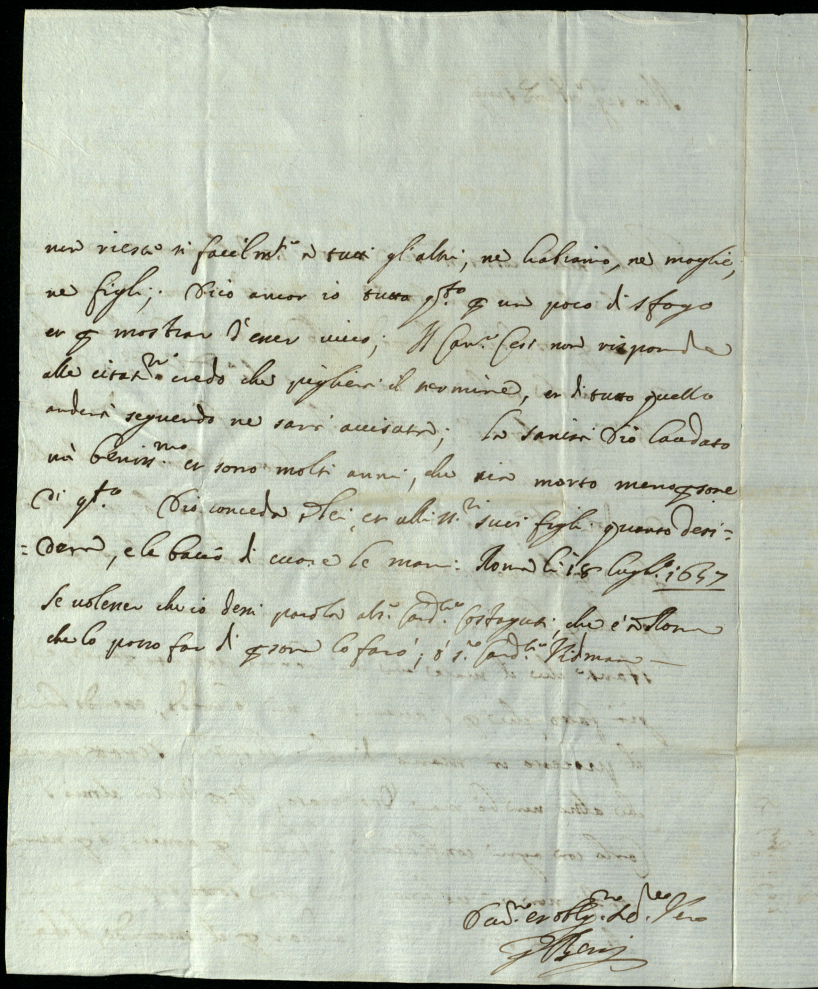 non riesce si facilmte à tutti gl'altri, ne habiamo, ne moglie,
ne figli; Dico ancor io tutto qsto p un poco di sfogo
et p mostrar d'esser vivo; Il Cavre Cesi non risponde
alle citatni credo che piglierà il termine, et di tutto quello
anderà seguendo ne sarà avisata; la sanità Dio laudato
và benissmo et sono molti anni, che sia morto meno psone
di qsto. Dio conceda à lei, et alli ssri suoi figli quanto desi=
=dera, e le bacio di cuore le mani. Roma li 18 lugl.o 1657
Se volesse che io dessi parola al sr Cardle Costaguti, che è à Roma
che lo posso far di psona lo farò; ò sr Cardle Vidman
et oblig. Sre Vero